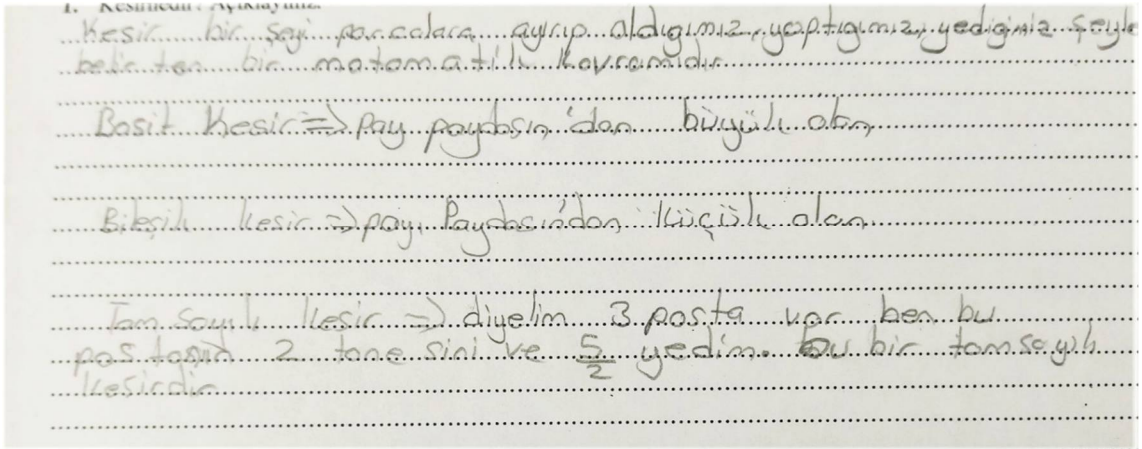 1. Kesir nedir? Açıklayınız.
Kesir bir şeyi parcalara ayırıp aldıgımız, yaptıgımız, yedigimiz şeyle
belirten bir matematik kavramıdır
Basit Kesir => Pay paydasın'dan büyük olan
Bileşik kesir => payı Paydasın'dan küçük olan
Tam Sayılı kesir => diyelim 3 pasta var ben bu
pastanın 2 tane sini ve 5/2 yedim. bu bir tamsayılı
kesirdir